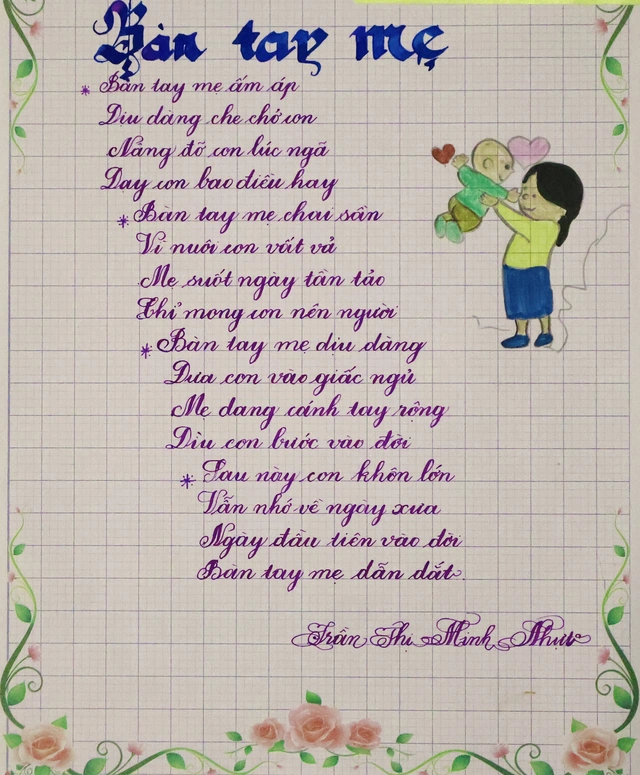 Bàn tay mẹ
* Bàn tay mẹ ấm áp
Dịu dàng che chở con
Nâng đỡ con lúc ngã
Dạy con bao điều hay
* Bàn tay mẹ chai sần
Vì nuôi con vất vả
Mẹ suốt ngày tần tảo
Chỉ mong con nên người
* Bàn tay mẹ dịu dàng
Đưa con vào giấc ngủ
Mẹ dang cánh tay rộng
Dìu con bước vào đời
* Sau này con khôn lớn
Vẫn nhớ về ngày xưa
Ngày đầu tiên vào đời
Bàn tay mẹ dẫn dắt.
Trần Thị Minh Như